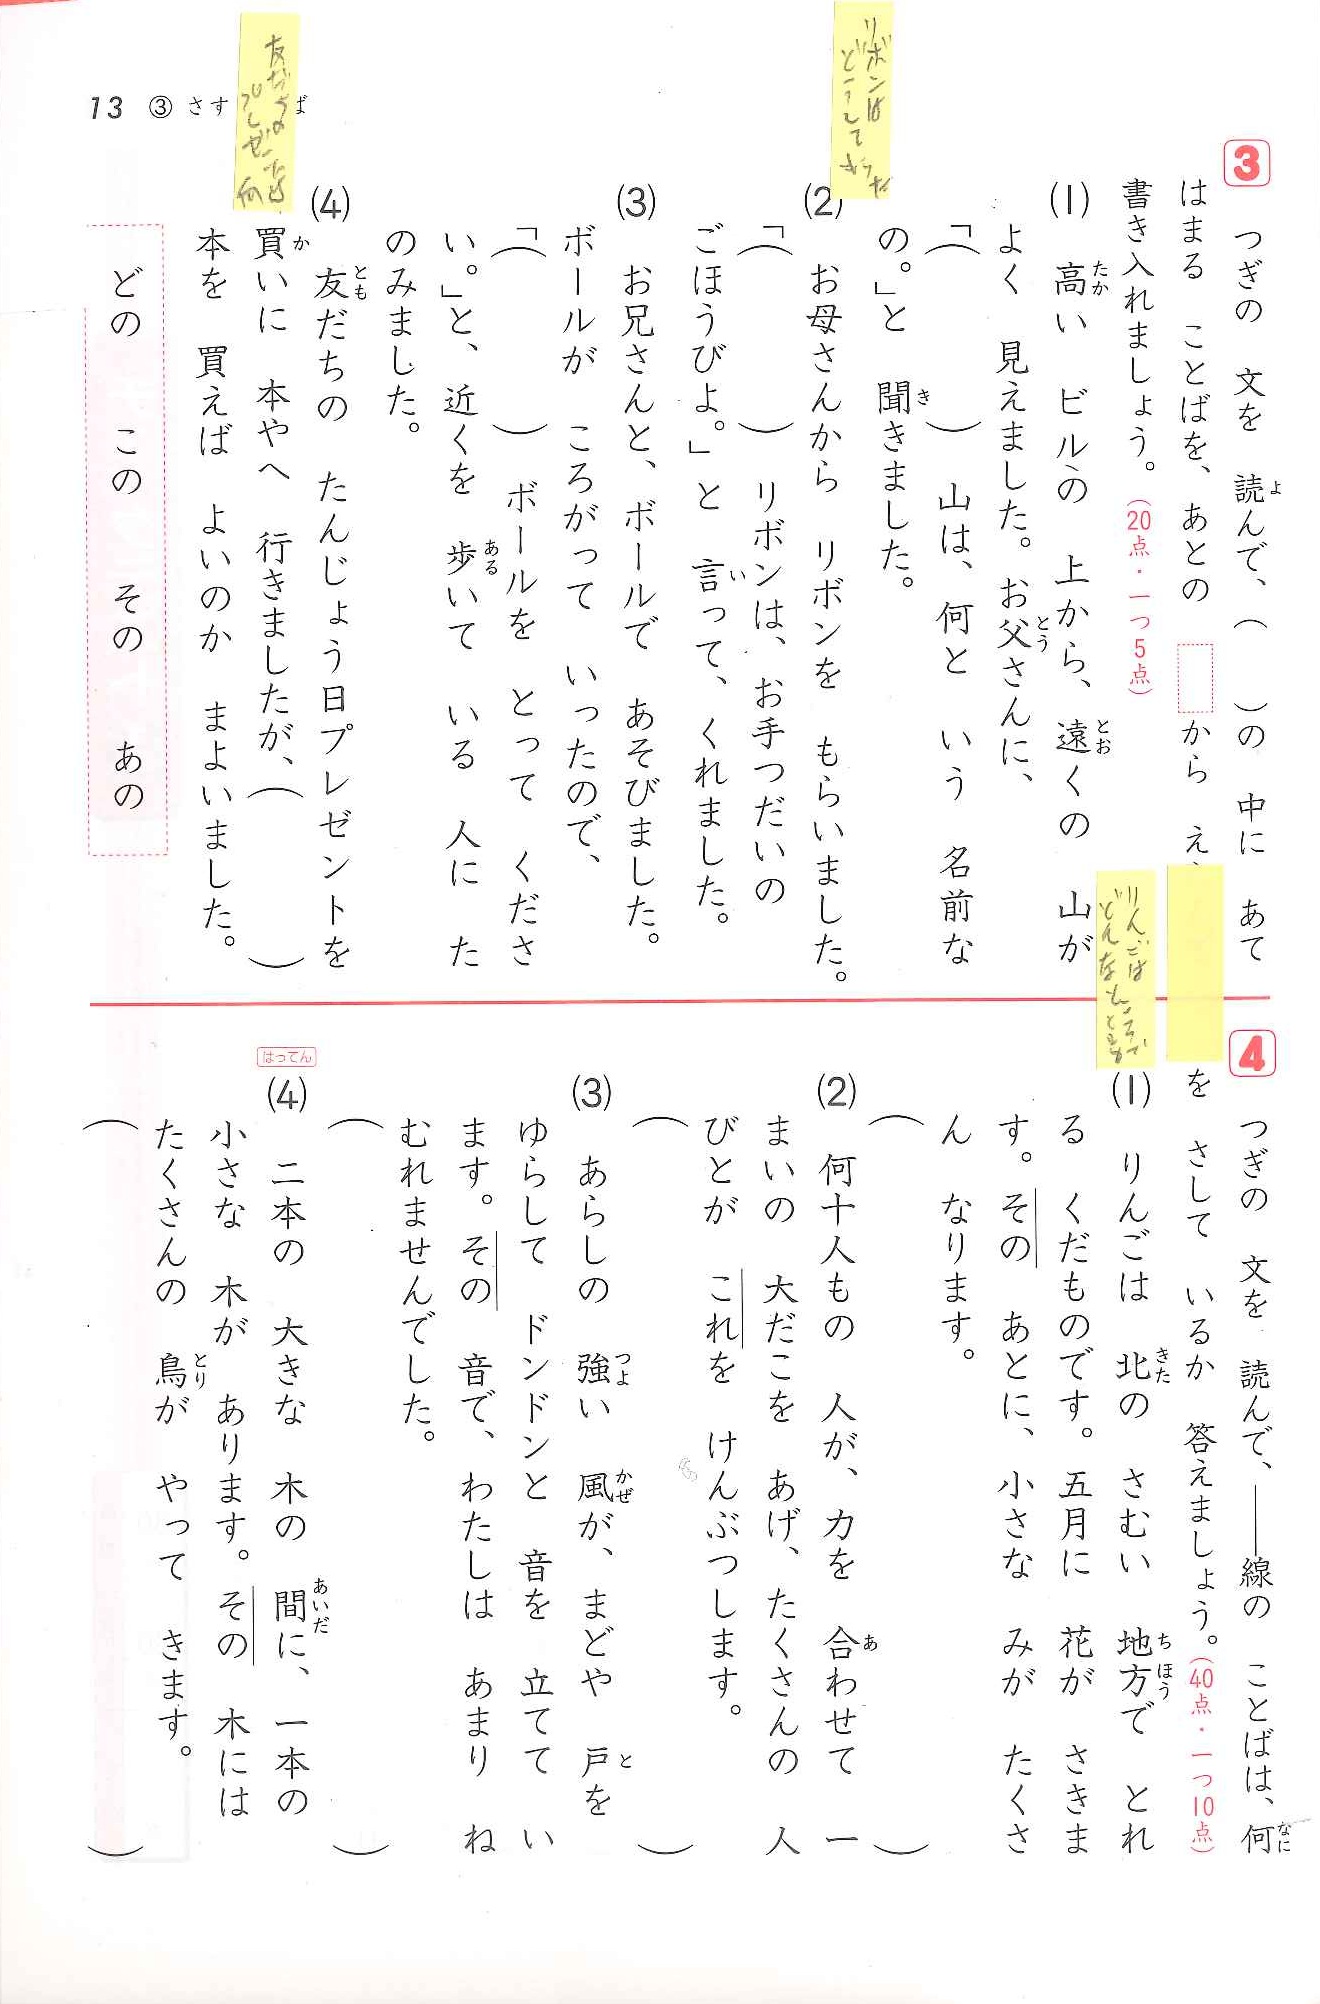 13 ③ さす ば
3
つぎの 文を 読んで、( )の 中に あて
はまる ことばを、あとの から え
書き入れましょう。(20点・一つ5点)
(1) 高い ビルの 上から、遠くの 山が
よく 見えました。お父さんに、
「( ) 山は、何と いう 名前な
の。」と 聞きました。
(2) お母さんから リボンを もらいました。
「( ) リボンは、お手つだいの
ごほうびよ。」と 言って、くれました。
(3) お兄さんと、ボールで あそびました。
ボールが ころがって いったので、
「( ) ボールを とって くださ
い。」と、近くを 歩いて いる 人に た
のみました。
(4) 友だちの たんじょう日プレゼントを
買いに 本やへ 行きましたが、( )
本を 買えば よいのか まよいました。
どの この その あの
リボンは
どうして
友だちの
何
りんごは
どんな
4
つぎの 文を 読んで、──線の ことばは、何
を さして いるか 答えましょう。(40点・一つ10点)
(1) りんごは 北の さむい 地方で とれ
る くだものです。五月に 花が さきま
す。その あとに、小さな みが たくさ
ん なります。
( )
(2) 何十人もの 人が、力を 合わせて 一
まいの 大だこを あげ、たくさんの 人
びとが これを けんぶつします。
( )
(3) あらしの 強い 風が、まどや 戸を
ゆらして ドンドンと 音を 立てて い
ます。その 音で、わたしは あまり ね
むれませんでした。
( )
はってん
(4) 二本の 大きな 木の 間に、一本の
小さな 木が あります。その 木には
たくさんの 鳥が やって きます。
( )